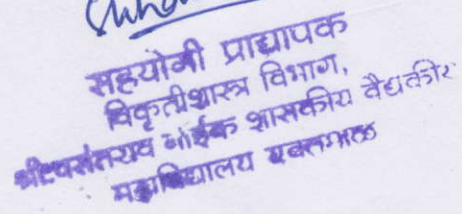 सहयोगी प्राध्यापक
विकृतीशास्त्र विभाग,
श्री वसंतराव नाईक शासकीय वैद्यकीय
महाविद्यालय यवतमाळ